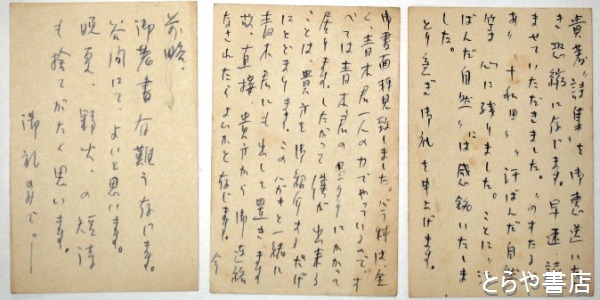 貴著「詩集」を御恵送いただ
き恐縮に存じます。早速読
ませていただきました。〃のすたるぢ
あ〃〃十和田〃〃汗ばんだ自然〃
等心に残りました。ことに〃汗
ばんだ自然〃には感銘いたしま
した。
とり急ぎ御礼を申上げます。
御書面拝見致しました。バラ科は全
く、青木君一人の力でやっているのです
べては青木君の にかかって
居ります。したがって僕が出来る
ことは、貴方を御紹介するだけ
にとどまります。このハガキと一緒に
青木君にも出して置きます
故、直接貴方から御連絡
なされたらよいかと存じます。
前略、
御著書有難う存じます。
谷間にて、よいと思います。
晩夏、野火、の短詩
も捨てがたく思います。
御礼のみで。
とらや書店